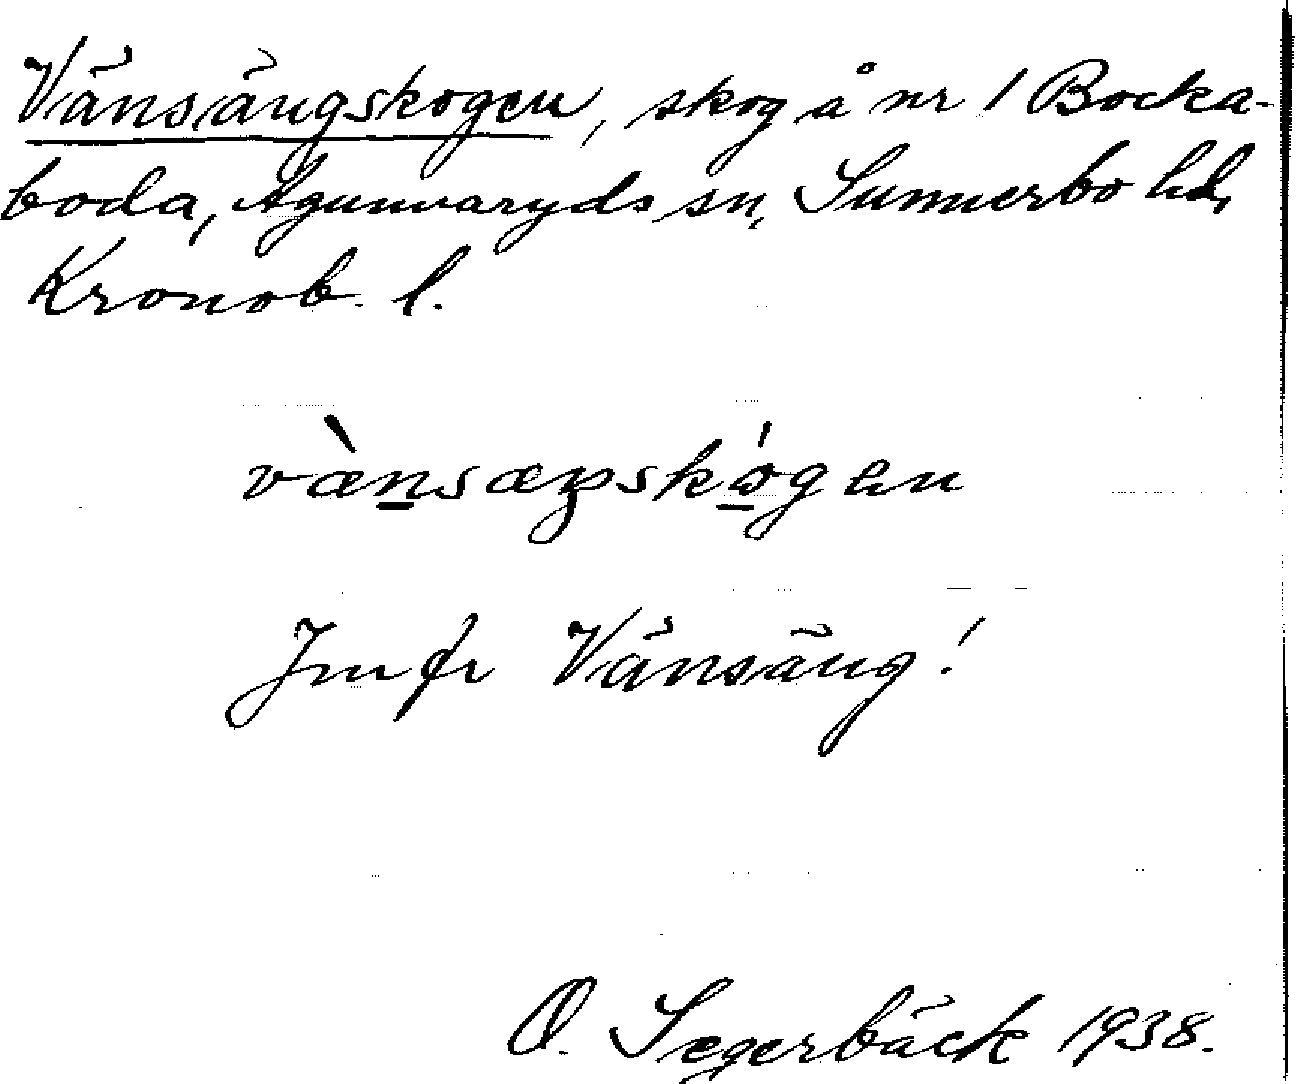 Vänsängskogen, skog å nr 1 Bocka-
boda, Agunnaryds sn, Sunnerbo hd,
Kronob. l.
væ̀nsæŋskó̱gen
Jmfr Vänsäng!
O. Segerbäck 1938.